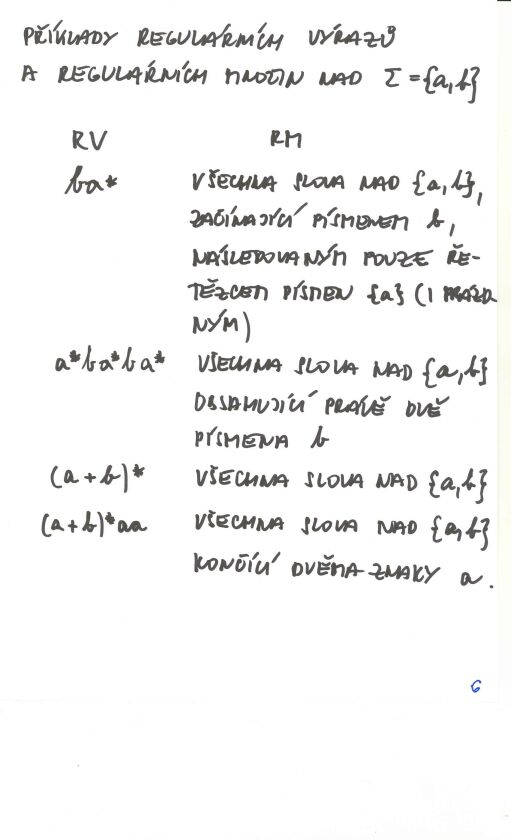 PŘÍKLADY REGULÁRNÍCH VÝRAZŮ
A REGULÁRNÍCH MNOŽIN NAD Σ = {a, b}
RV RM
ba* VŠECHNA SLOVA NAD {a, b},
ZAČÍNAJÍCÍ PÍSMENEM b,
NÁSLEDOVANÝM POUZE ŘE-
TĚZCEM PÍSMEN {a} (I PRÁZD
NÝM)
a*ba*ba* VŠECHNA SLOVA NAD {a, b}
OBSAHUJÍCÍ PRÁVĚ DVĚ
PÍSMENA b
(a+b)* VŠECHNA SLOVA NAD {a, b}
(a+b)*aa VŠECHNA SLOVA NAD {a, b}
KONČÍCÍ DVĚMA ZNAKY a.
6